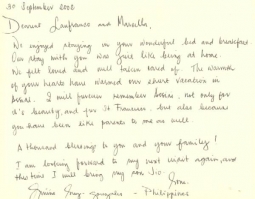 30 September 2002
Dearest Lanfranco and Marsella,
We enjoyed staying in your wonderful bed and breakfast
Our stay with you was just like being at home
We felt loved and well taken cared of. The warmth
of your hearts have warmed our short vacation in
Assisi. I will forever remember Assisi, not only for
it's beauty, and for St Francis, but also because
you have been like parents to me as well.
A thousand blessings to you and your family!
I am looking forward to my next visit again, and
this time I will bring my son J.o.
Love,
- Philippines